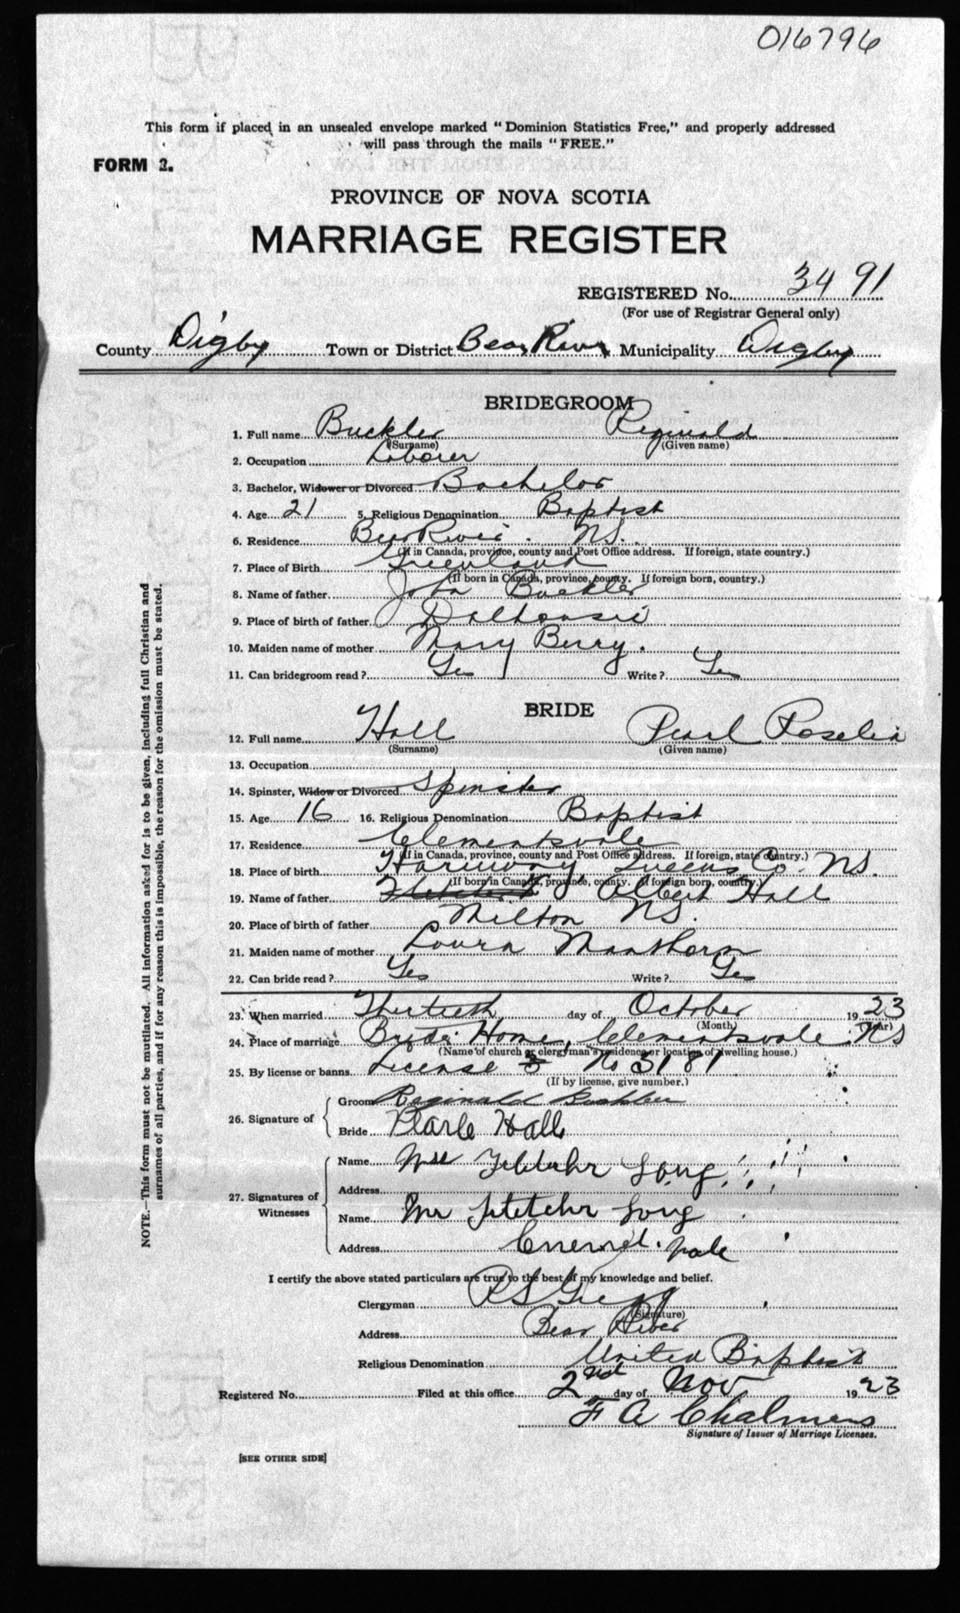 016796
This form if placed in an unsealed envelope marked "Dominion Statistics Free," and properly addressed
will pass through the mails "FREE."
FORM 2.
PROVINCE OF NOVA SCOTIA
MARRIAGE REGISTER
REGISTERED No. 3491
(For use of Registrar General only)
County Digby Town or District Bear River Municipality Digby
BRIDEGROOM
1. Full name Buckler Reginald
(Surname) (Given name)
2. Occupation Laborer
3. Bachelor, Widower or Divorced Bachelor
4. Age 21 5. Religious Denomination Baptist
6. Residence Bear River. NS.
(If in Canada, province, county and Post Office address. If foreign, state country.)
7. Place of Birth Greenland
(If born in Canada, province, county. If foreign born, country.)
8. Name of father John Buckler
9. Place of birth of father Dalhousie
10. Maiden name of mother Mary Berry.
11. Can bridegroom read? Yes Write? Yes
BRIDE
12. Full name Hall Pearl Roselia
(Surname) (Given name)
13. Occupation
14. Spinster, Widow or Divorced Spinster
15. Age 16 16. Religious Denomination Baptist
17. Residence Clementsvale
(If in Canada, province, county and Post Office address. If foreign, state country.)
18. Place of birth Harmony, Queens Co. NS.
(If born in Canada, province, county. If foreign born, country.)
19. Name of father Fletcher Albert Hall
20. Place of birth of father Milton NS.
21. Maiden name of mother Laura
22. Can bride read? Yes Write? Yes
23. When married Thirtieth day of October 1923
(Month) (Year)
24. Place of marriage Brides Home, Clementsvale. NS
(Name of church or clergyman's residence or location of dwelling house.)
25. By license or banns License No 3181
(If by license, give number.)
26. Signature of
Groom Reginald Buckler
Bride Pearle Hall
27. Signatures of Witnesses
Name Mrs Fletcher Long
Address
Name Mr Fletcher Long
Address
I certify the above stated particulars are true to the best of my knowledge and belief.
Clergyman R S Gregg
(Signature)
Address Bear River
Religious Denomination United Baptist
Registered No. Filed at this office 2nd day of Nov 1923
F A Chalmers
Signature of Issuer of Marriage Licenses.
[SEE OTHER SIDE]
NOTE.—This form must not be mutilated. All information asked for is to be given, including full Christian and
surnames of all parties, and if for any reason this is impossible, the reason for the omission must be stated.